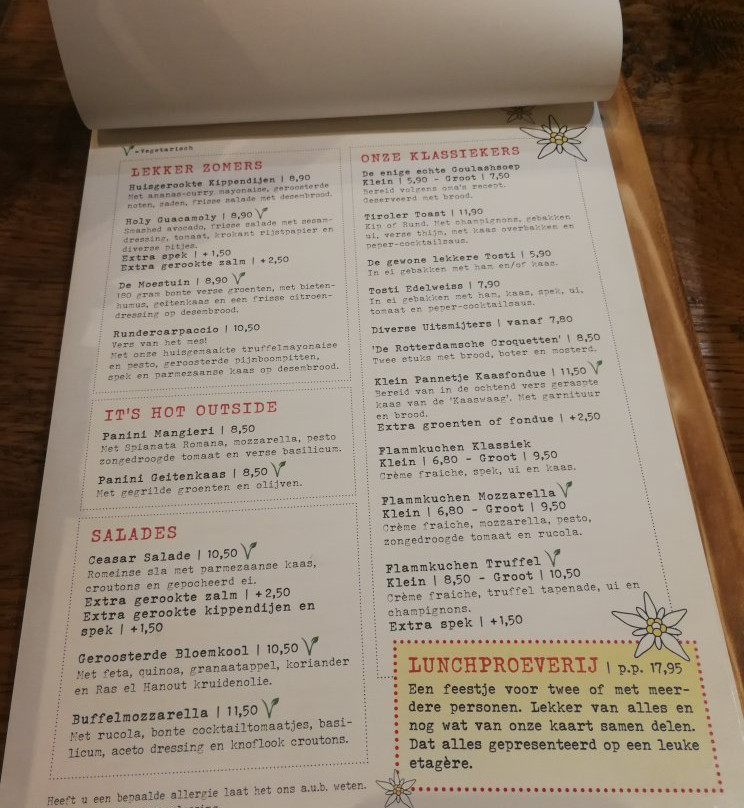 =Vegetarisch
LEKKER ZOMERS
Huisgerookte Kippendijen | 8,90
Met ananas-curry mayonaise, geroosterde
noten, zaden, frisse salade met desembrood.
Holy Guacamoly | 8,90
Smashed avocado, frisse salade met sesam-
dressing, tomaat, krokant rijstpapier en
diverse pitjes.
Extra spek | +1,50
Extra gerookte zalm | +2,50
De Moestuin | 8,90
180 gram bonte verse groenten, met bieten-
humus, geitenkaas en een frisse citroen-
dressing op desembrood.
Rundercarpaccio | 10,50
Vers van het mes!
Met onze huisgemaakte truffelmayonaise
en pesto, geroosterde pijnboompitten,
spek en parmezaanse kaas op desembrood.
IT'S HOT OUTSIDE
Panini Mangieri | 8,50
Met Spianata Romana, mozzarella, pesto
zongedroogde tomaat en verse basilicum.
Panini Geitenkaas | 8,50
Met gegrilde groenten en olijven.
SALADES
Ceasar Salade | 10,50
Romeinse sla met parmezaanse kaas,
croutons en gepocheerd ei.
Extra gerookte zalm | +2,50
Extra gerookte kippendijen en
spek | +1,50
Geroosterde Bloemkool | 10,50
Met feta, quinoa, granaatappel, koriander
en Ras el Hanout kruidenolie.
Buffelmozzarella | 11,50
Met rucola, bonte cocktailtomaatjes, basi-
licum, aceto dressing en knoflook croutons.
Heeft u een bepaalde allergie laat het ons a.u.b. weten.
ONZE KLASSIEKERS
De enige echte Goulashsoep
Klein | 5,90 - Groot | 7,50
Bereid volgens oma's recept.
Geserveerd met brood.
Tiroler Toast | 11,90
Kip of Rund. Met champignons, gebakken
ui, verse thijm, met kaas overbakken en
peper-cocktailsaus.
De gewone lekkere Tosti | 5,90
In ei gebakken met ham en/of kaas.
Tosti Edelweiss | 7,90
In ei gebakken met ham, kaas, spek, ui,
tomaat en peper-cocktailsaus.
Diverse Uitsmijters | vanaf 7,80
'De Rotterdamsche Croquetten' | 8,50
Twee stuks met brood, boter en mosterd.
Klein Pannetje Kaasfondue | 11,50
Bereid van in de ochtend vers geraspte
kaas van de 'Kaaswaag'. Met garnituur
en brood.
Extra groenten of fondue | +2,50
Flammkuchen Klassiek
Klein | 6,80 - Groot | 9,50
Crème fraiche, spek, ui en kaas.
Flammkuchen Mozzarella
Klein | 6,80 - Groot | 9,50
Crème fraiche, mozzarella, pesto,
zongedroogde tomaat en rucola.
Flammkuchen Truffel
Klein | 8,50 - Groot | 10,50
Crème fraiche, truffel tapenade, ui en
champignons.
Extra spek | +1,50
LUNCHPROEVERIJ | p.p. 17,95
Een feestje voor twee of met meer-
dere personen. Lekker van alles en
nog wat van onze kaart samen delen.
Dat alles gepresenteerd op een leuke
etagère.